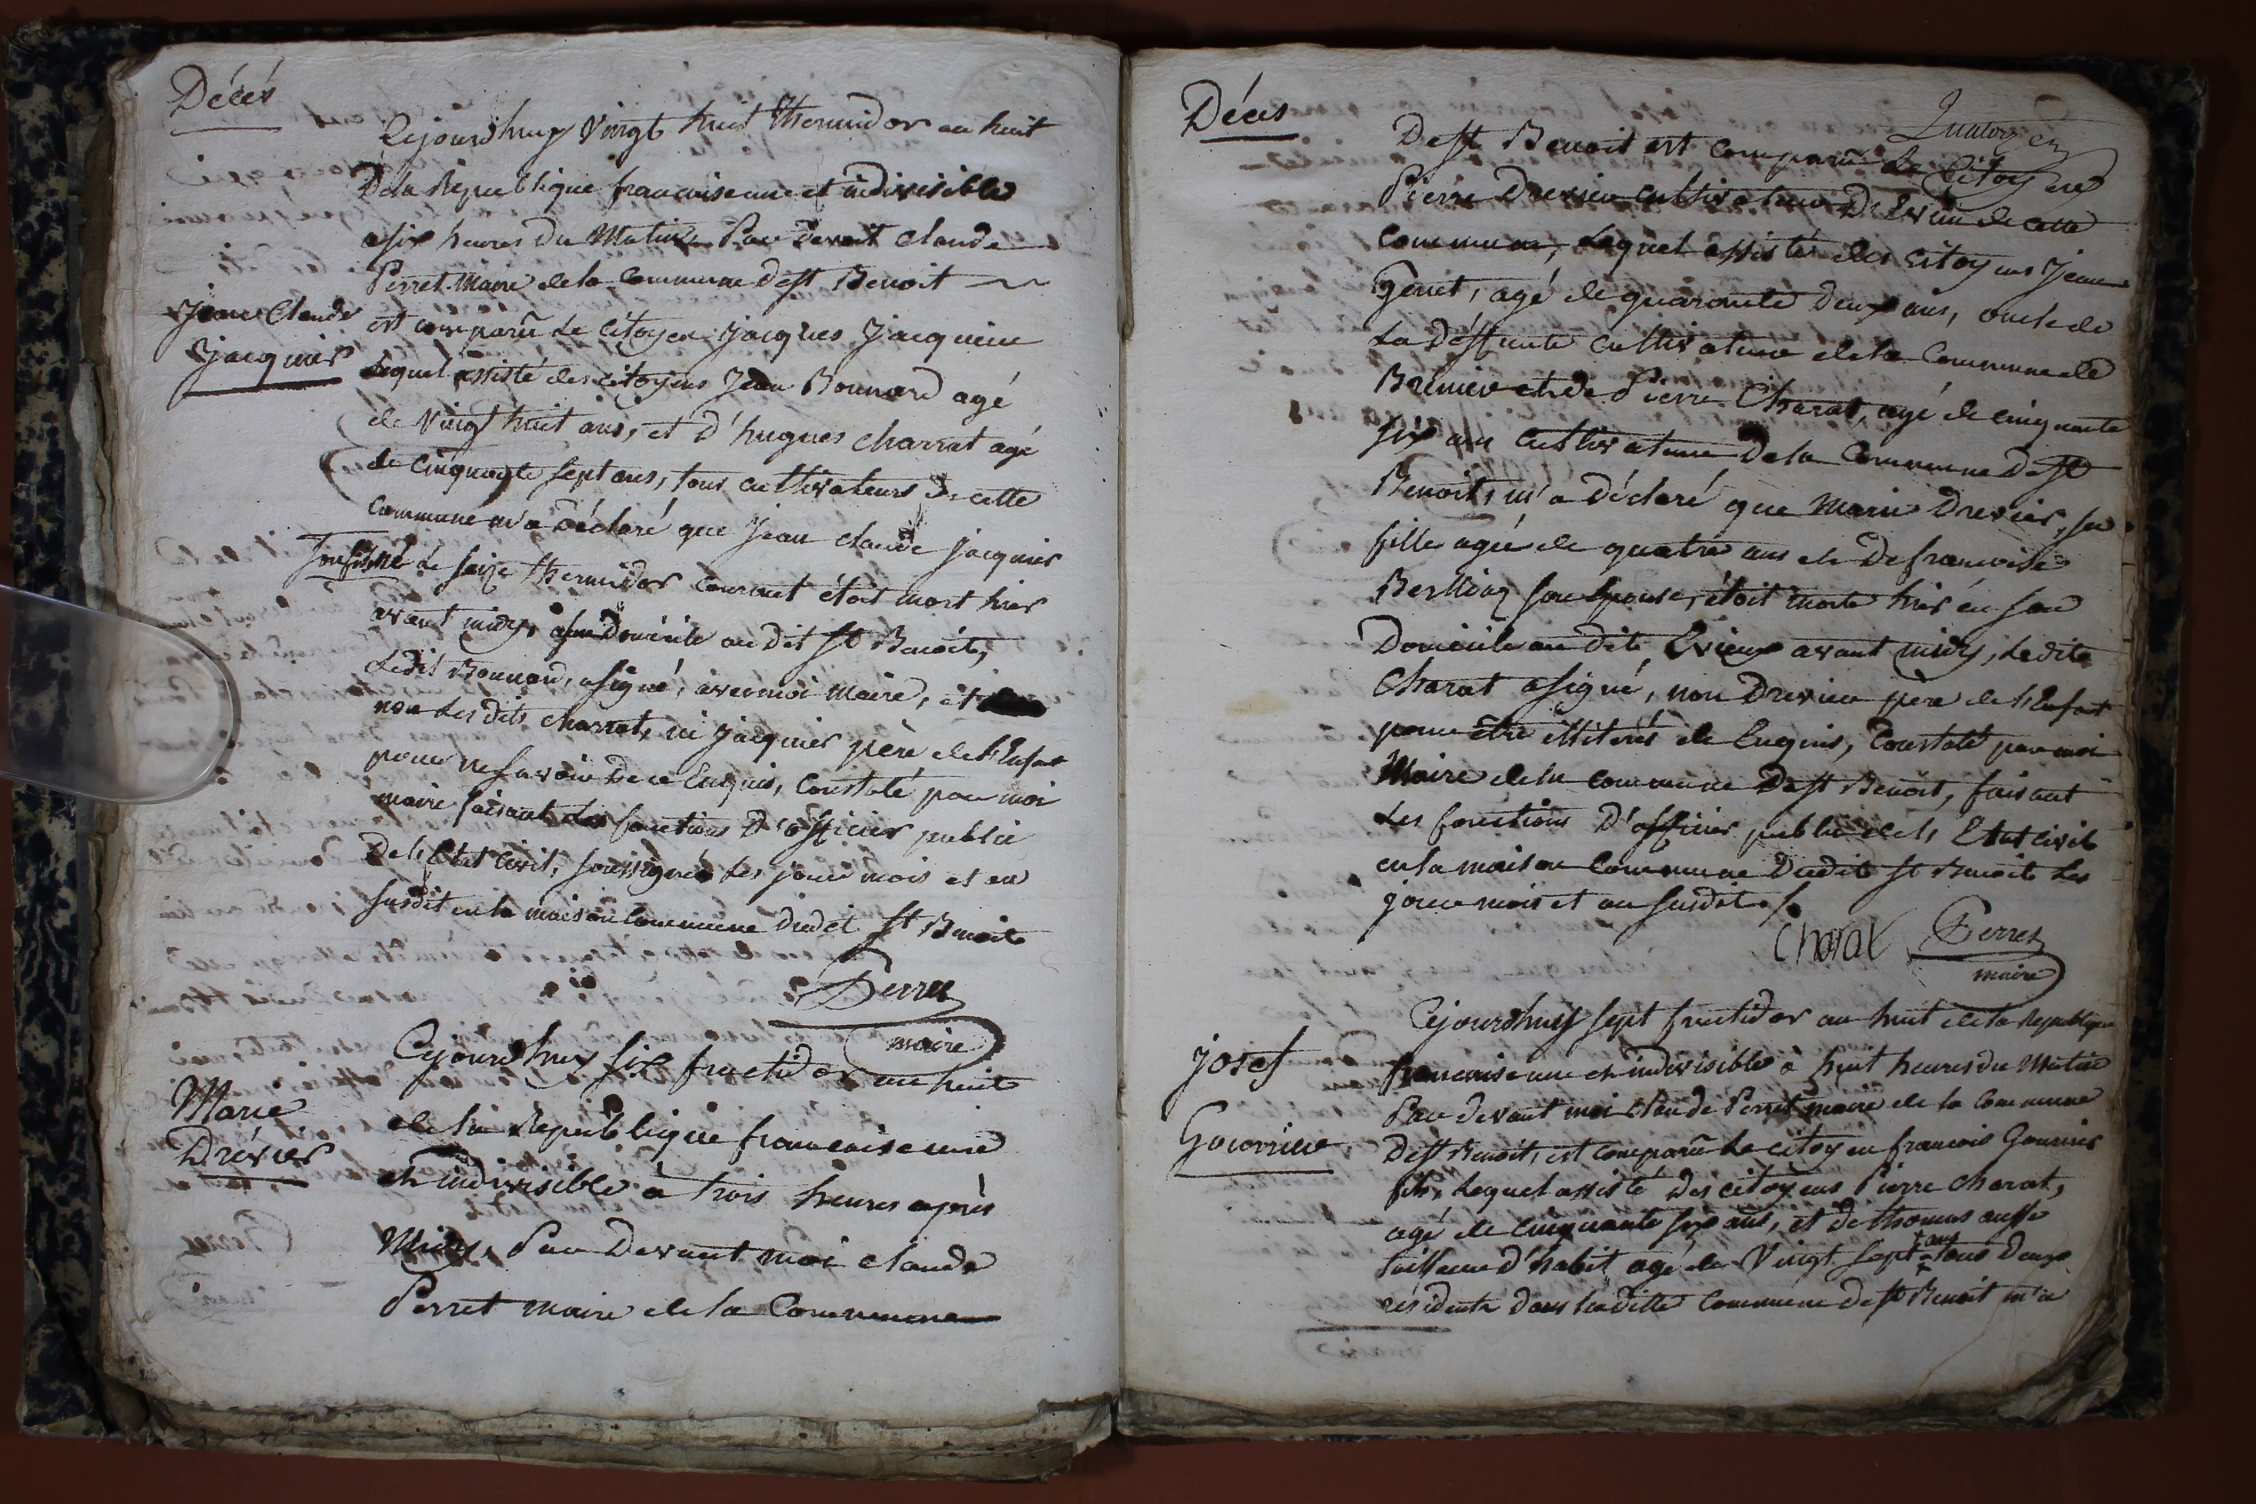 Décés
Cejourdhuy Vingt huit thermidor an huit
Dela Republique francaise une et indivisible
a six heures du Matin Par devant Claude
Perret Maire dela Commune de st Benoit
Jean Claude
Jacquier
est comparu le citoyen Jacques Jacquier
Lequel assisté des citoyens Jean Bonnard agé
de Vingt huit ans, et d'hugues charrat agé
de Cinquante Sept ans, tous cultivateurs de cette
commune m'a déclaré que Jean claude Jacquier
son fils né le seize thermidor courant étoit mort hier
avant midy, a son Domicile au dit st Benoit,
Ledit Bonnard, a signé, avec moi Maire, et
non les dits charrat, ni Jacquier père de l'Enfant
pour ne savoir de ce Enquis, Constaté par moi
maire faisant les fonctions D'officier public
De l'Etat Civil, soussigné les jour mois et an
susdit en la maison Commune dudit st Benoit
Perret
maire
Marie
Drévier
Cejourdhuy six fructidor an huit
de la Republique francaise une
et indivisible à trois heures après
Midy, Par Devant moi claude
Perret maire de la Commune
Décés
De st Benoit est comparu le Citoyen
Pierre Drevier cultivateur D'Evieu de cette
commune, Lequel assisté des citoyens Jean
Genet, agé de quarante Deux ans, oncle de
La Deffunte cultivateur dela Commune de
et de Pierre Charat, agé de cinquante
six ans cultivateur Dela Commune De st
Benoit, m'a Déclaré que Marie Drevier, sa
fille agée de quatre ans et De francoise
son Epouse, étoit morte hier en son
Domicile au dit Evieux avant midy, Ledit
Charat a signé, non Drevier père de l'Enfant
pour être illiterés de Enquis, Constaté par moi
Maire dela commune De st Benoit, faisant
Les fonctions D'officier public de l'Etat Civil
en la maison Commune Dudit st Benoit Les
jour mois et an susdit./.
Charat Perret
maire
josef
Gourrieu
Cejourdhuy sept fructidor an huit de la Republique
francaise une et indivisible à huit heures du Matin
Par devant moi Claude Perret maire de la Commune
De st Benoit, est comparu Le citoyen francois
fils, Lequel assisté Des citoyens Pierre Charat,
agé de Cinquante six ans, et de thomas
tailleur d'habit agé de Vingt Sept ans tous Deux
résidents dans laditte Commune de st Benoit m'a